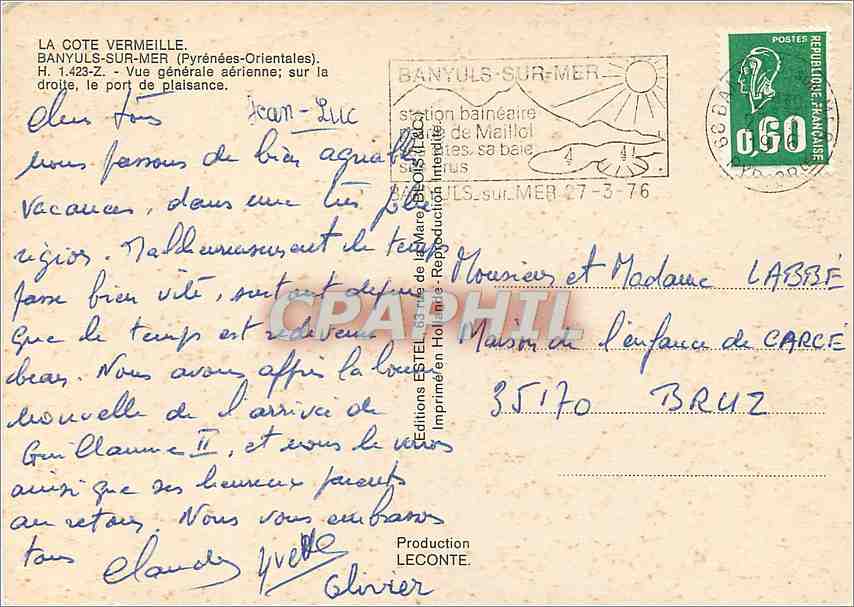 LA COTE VERMEILLE.
BANYULS-SUR-MER (Pyrénées-Orientales).
H. 1.423-Z. - Vue générale aérienne; sur la
droite, le port de plaisance.
Chers tous Jean-Luc
nous passons de bien agréables
vacances, dans une très jolie
région. Malheureusement le temps
passe bien vite, surtout depuis
que le temps est redevenu
beau. Nous avons appris la bonne
nouvelle de l'arrivée de
Guillaume II, et nous le verrons
ainsi que ses heureux parents
au retour. Nous vous embrassons
tous
Claude Yvette
Olivier
BANYULS-SUR-MER
station balnéaire
de Maillol
sa baie
BANYULS-sur-MER 27-3-76
POSTES
REPUBLIQUE FRANÇAISE
0,60
Editions ESTEL, 63 rue de la Mare, BLOIS (L&C)
Imprimé en Hollande - Reproduction Interdite.
CPAPHIL
Monsieur et Madame LABBÉ
Maison de l'enfance de CARCÉ
35170 BRUZ
Production
LECONTE.